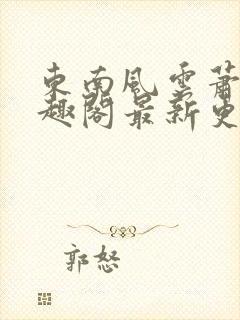 東南風雲蕭
趣閣最新更
郭怒